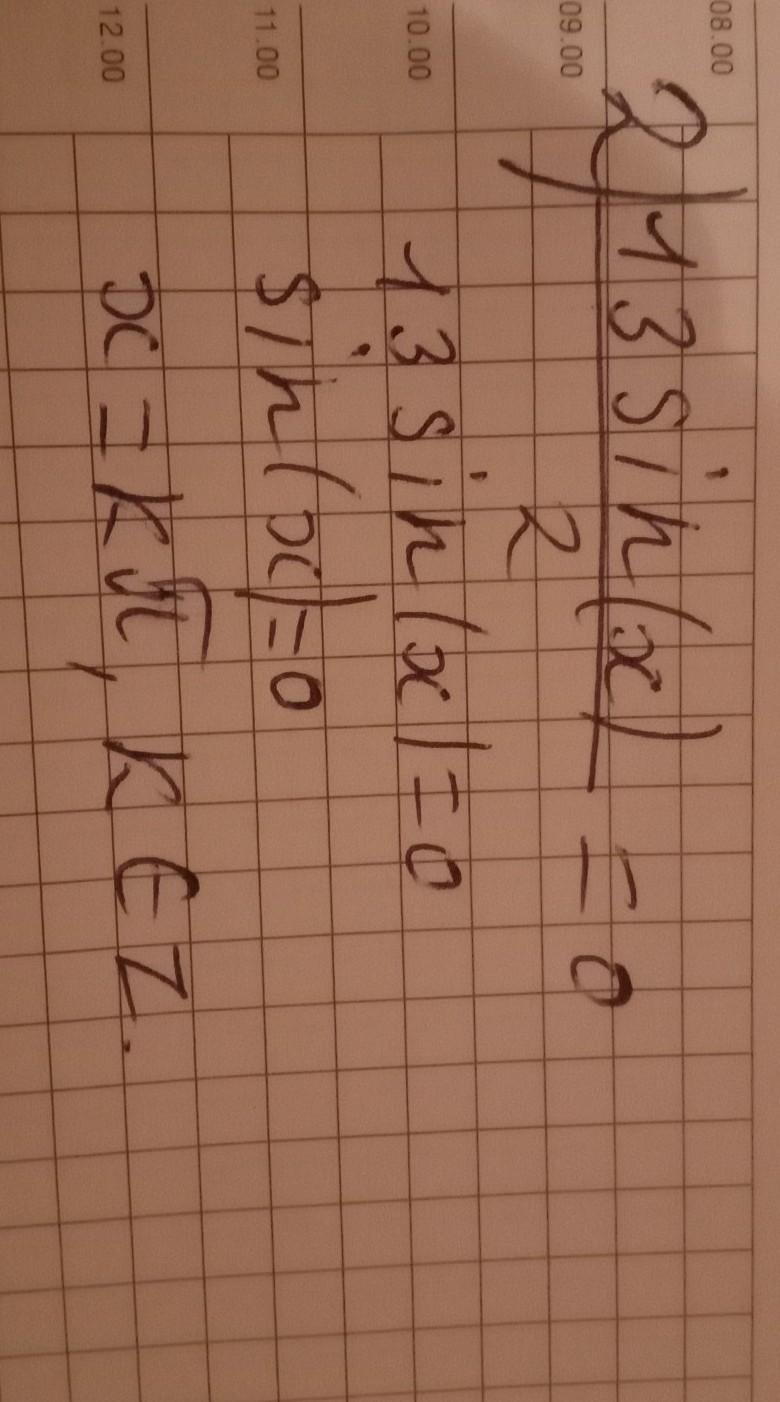 08.00
2) 13 sin(x)
09.00
2
= 0
10.00
13 sin(x) = 0
11.00
sin(x) = 0
12.00
x = kπ, k ∈ Z.